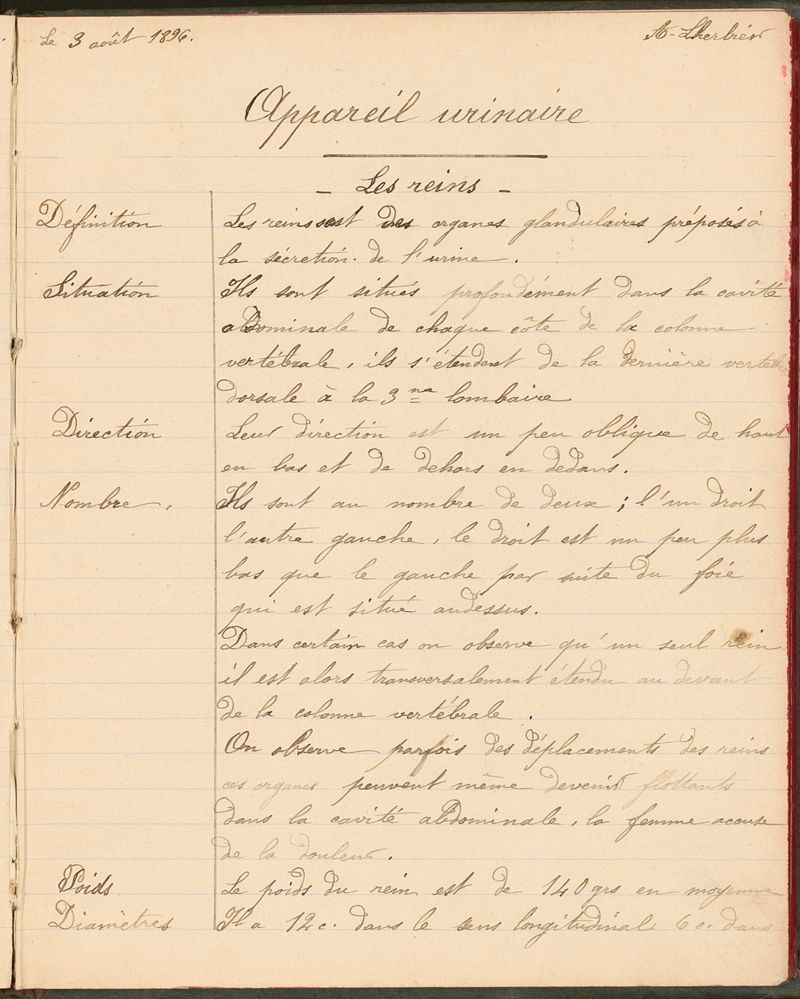 Le 3 août 1896. A. Lherbier
Appareil urinaire
- Les reins -
Définition Les reins sont des organes glandulaires préposés à
la sécrétion de l'urine.
Situation Ils sont situés profondément dans la cavité
abdominale de chaque côte de la colonne
vertébrale, ils s'étendent de la dernière vertèb
dorsale à la 3me lombaire
Direction Leur direction est un peu oblique de haut
en bas et de dehors en dedans.
Nombre. Ils sont au nombre de deux ; l'un droit
l'autre gauche, le droit est un peu plus
bas que le gauche par suite du foie
qui est situé audessus.
Dans certain cas on observe qu'un seul rein
il est alors transversalement étendu au devant
de la colonne vertébrale.
On observe parfois des déplacements des reins
ces organes peuvent même devenir flottants
dans la cavité abdominale, la femme accuse
de la douleur.
Poids Le poids du rein est de 140grs en moyenne
Diamètres Il a 12c. dans le sens longitudinal 6c. dans